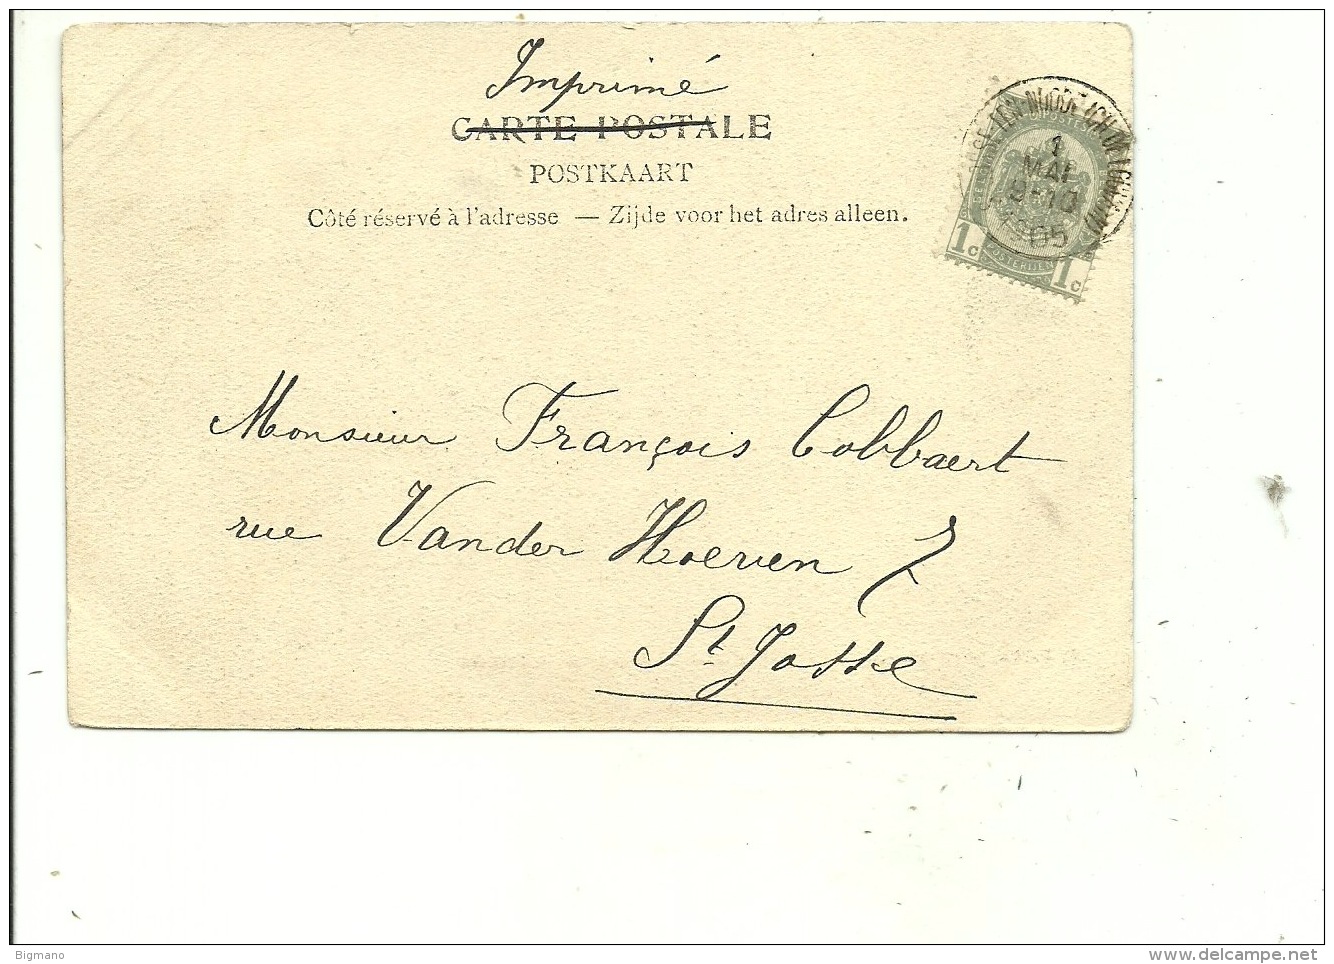 Imprimé
CARTE POSTALE
POSTKAART
Côté réservé à l'adresse — Zijde voor het adres alleen.
1
MAI
9-10
1905
1c 1c
Monsieur François Cobbaert
rue Vander Hoeven 7
St Josse
Bigmano
www.delcampe.net